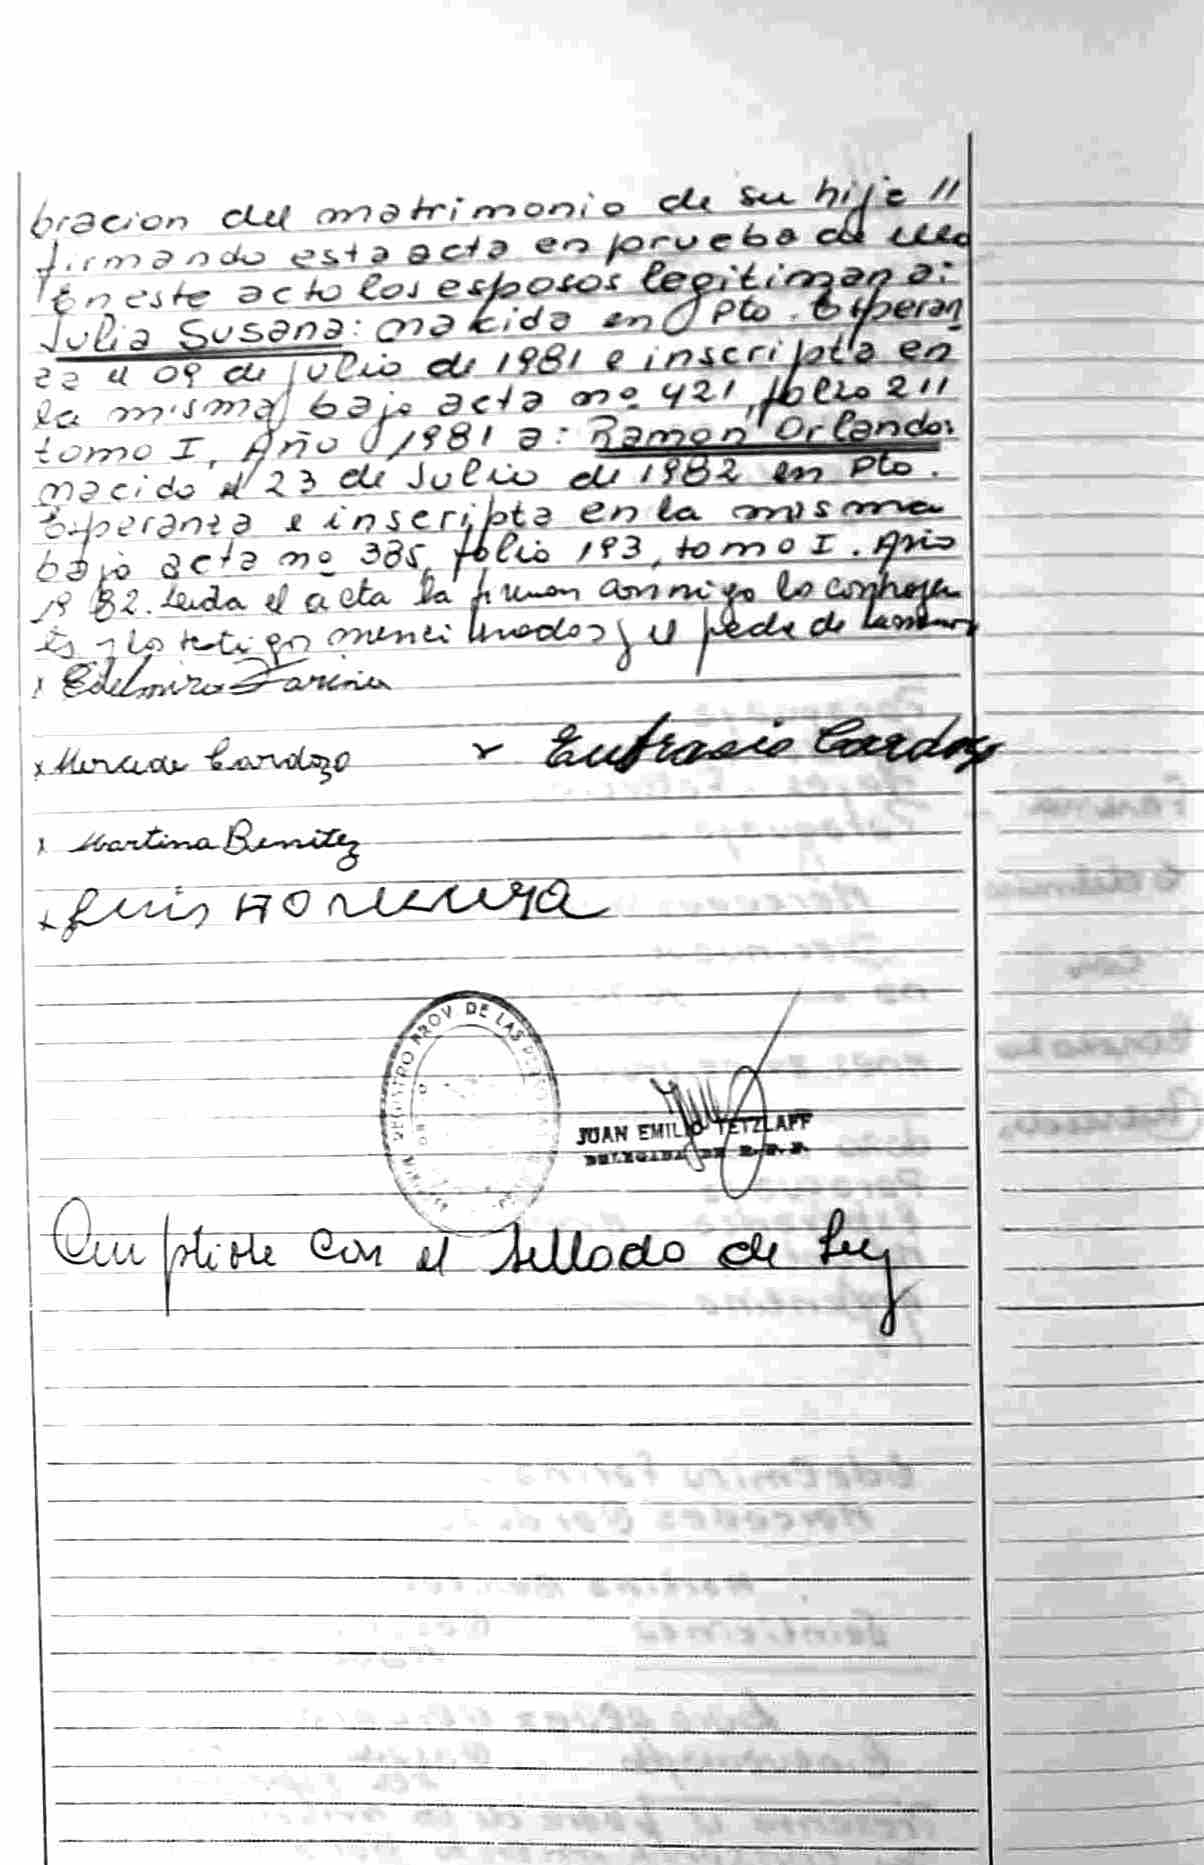 bracion del matrimonio de su hija //
firmando esta acta en prueba de ello
En este acto los esposos legitiman a:
Julia Susana: nacida en Pto. Esperan
za el 09 de julio de 1981 e inscripta en
la misma bajo acta nº 421, folio 211
tomo I, Año 1981 a: Ramon Orlando:
nacido el 23 de Julio de 1982 en Pto.
Esperanza e inscripta en la misma
bajo acta nº 385, folio 193, tomo I. Año
1982. Leida el acta la firman conmigo los conyuges
mencionados y el padre de
x Edelmiro Fariña
x Mercede Cardozo x Eufrasio Cardozo
x Martina Benitez
x Luis
REGISTRO PROV. DE LAS
JUAN EMILIO TETZLAFF
DELEGADA DE R.P.P.
Cumplióse con el Sellado de Ley